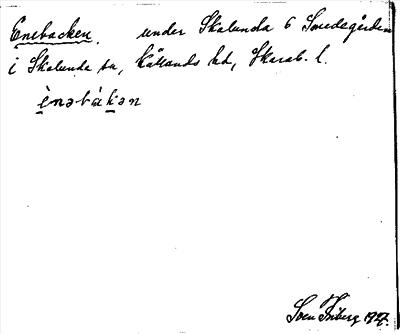 Enebacken. under Skalunda 6 Smedsgården
i Skalunda sn, Kållands hd, Skarab. l.
ènəbàkən
Sven Friberg 1927.